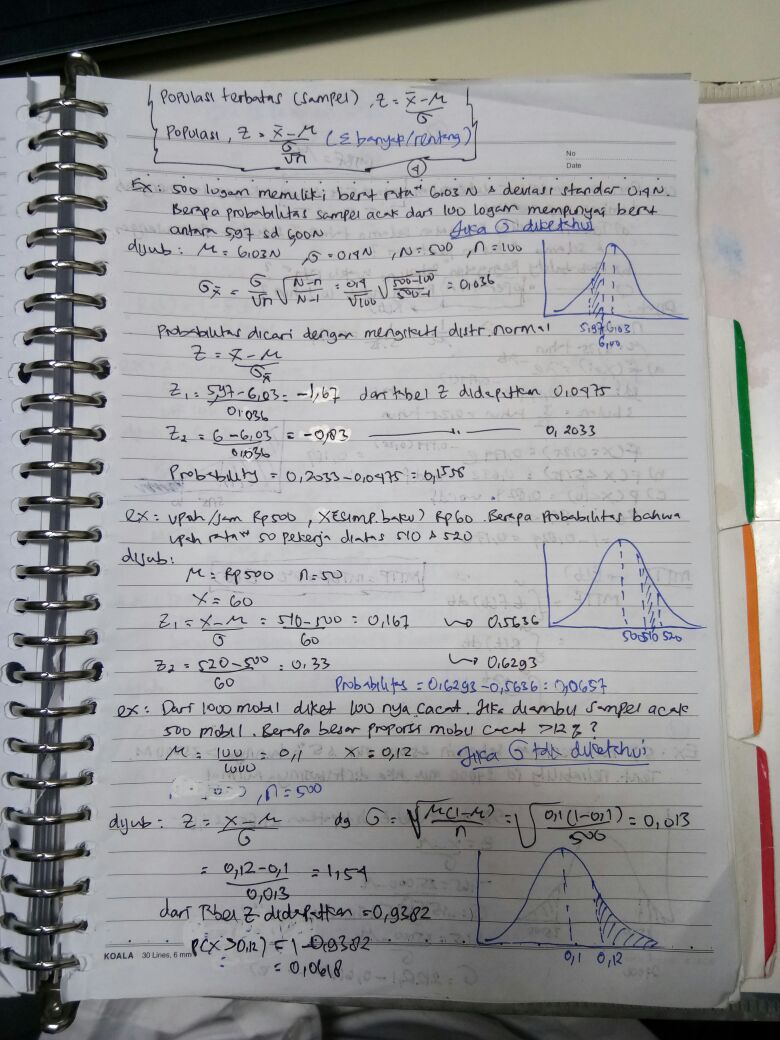 Populasi terbatas (sampel), Z = x̄ - μ / σ
Populasi, Z = x̄ - μ / σ/√n (Σ banyak/rentang)
4
No
Date
Ex: 500 logam memiliki berat rata" 6,03 N & deviasi standar 0,4 N.
Berapa probabilitas sampel acak dari 100 logam mempunyai berat
antara 5,97 sd 6,00N Jika σ diketahui
dijwb: μ = 6,03N, σ = 0,4N, N = 500, n = 100
σx̄ = σ/√n √(N-n / N-1) = 0,4/√100 √(500-100 / 500-1) = 0,036
5,97 6,03
6,00
Probabilitas dicari dengan mengikuti distr. normal
Z = x̄ - μ / σx̄
Z1 = 5,97 - 6,03 / 0,036 = -1,67 dari tabel Z didapatkan 0,0475
Z2 = 6 - 6,03 / 0,036 = -0,83 —— " —— 0,2033
Probability = 0,2033 - 0,0475 = 0,1558
ex: upah/jam Rp500, X(simp. baku) Rp60. Berapa Probabilitas bahwa
upah rata" 50 pekerja diatas 510 & 520
dijwb:
μ = Rp500 n = 50
X = 60
Z1 = x - μ / σ = 510 - 500 / 60 = 0,167 ↝ 0,5636
500 510 520
Z2 = 520 - 500 / 60 = 0,33 ↝ 0,6293
Probabilitas = 0,6293 - 0,5636 = 0,0657
ex: Dari 1000 mobil diket 100 nya cacat. Jika diambil sampel acak
500 mobil. Berapa besar proporsi mobil cacat >12%?
μ = 100/1000 = 0,1 X = 0,12 Jika σ tdk diketahui
, n = 500
dijwb: Z = x - μ / σ dg σ = √(μ(1-μ) / n) = √(0,1(1-0,1) / 500) = 0,013
= 0,12 - 0,1 / 0,013 = 1,54
dari Tabel Z didapatkan = 0,9382
P(X > 0,12) = 1 - 0,9382
0,1 0,12
= 0,0618
KOALA 30 Lines, 6 mm